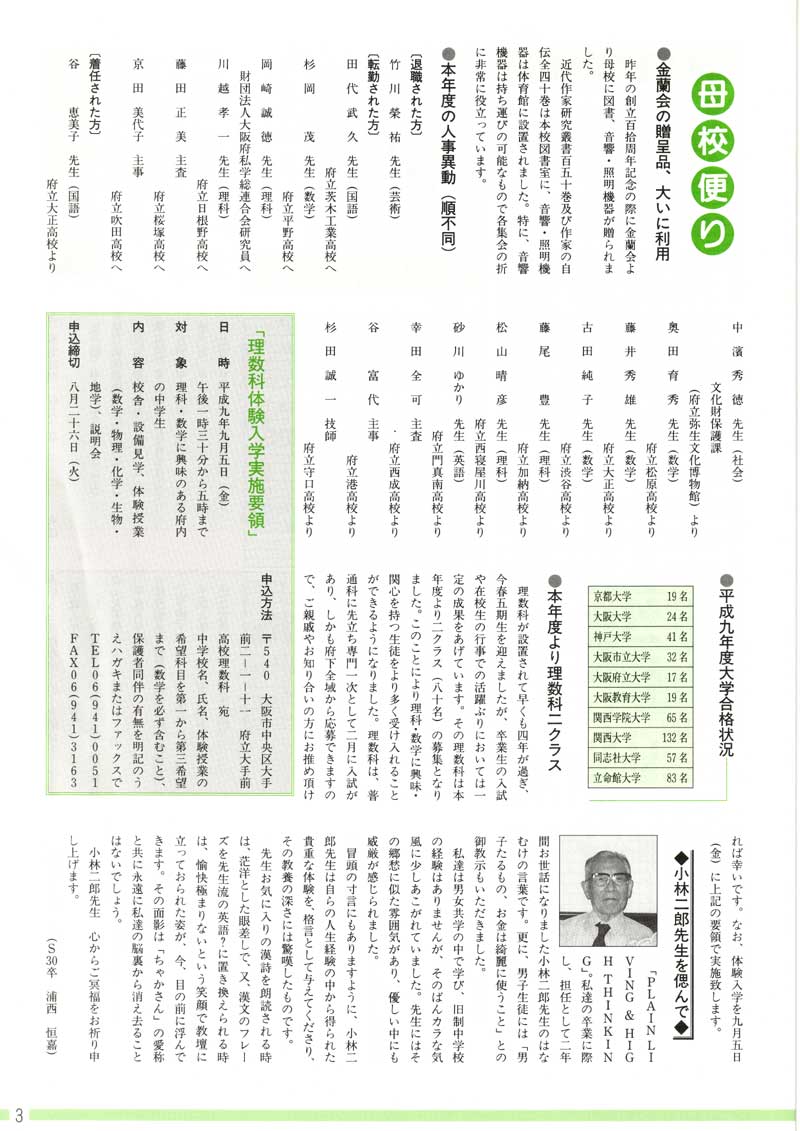 母校便り
●金蘭会の贈呈品、大いに利用
昨年の創立百拾周年記念の際に金蘭会よ
り母校に図書、音響・照明機器が贈られま
した。
近代作家研究叢書百五十巻及び作家の自
伝全四十巻は本校図書室に、音響・照明機
器は体育館に設置されました。特に、音響
機器は持ち運びの可能なもので各集会の折
に非常に役立っています。
●本年度の人事異動（順不同）
〔退職された方〕
竹川榮祐 先生（芸術）
〔転勤された方〕
田代武久 先生（国語）
府立茨木工業高校へ
杉岡 茂 先生（数学）
府立平野高校へ
岡崎誠徳 先生（理科）
財団法人大阪府私学総連合会研究員へ
川越孝一 先生（理科）
府立日根野高校へ
藤田正美 主査
府立桜塚高校へ
京田美代子 主事
府立吹田高校へ
〔着任された方〕
谷 恵美子 先生（国語）
府立大正高校より
中濱秀徳 先生（社会）
文化財保護課
（府立弥生文化博物館）より
奥田育秀 先生（数学）
府立松原高校より
藤井秀雄 先生（数学）
府立大正高校より
古田純子 先生（数学）
府立渋谷高校より
藤尾 豊 先生（理科）
府立加納高校より
松山晴彦 先生（理科）
府立西寝屋川高校より
砂川ゆかり 先生（英語）
府立門真南高校より
幸田全可 主査
府立西成高校より
谷 富代 主事
府立港高校より
杉田誠一 技師
府立守口高校より
「理数科体験入学実施要領」
日 時 平成九年九月五日（金）
午後一時三十分から五時まで
対 象 理科・数学に興味のある府内
の中学生
内 容 校舎・設備見学、体験授業
（数学・物理・化学・生物・
地学）、説明会
申込締切 八月二十六日（火）
申込方法 〒540 大阪市中央区大手
前二-一-十一 府立大手前
高校理数科 宛
中学校名、氏名、体験授業の
希望科目を第一から第三希望
まで（数学を必ず含むこと）、
保護者同伴の有無を明記のう
えハガキまたはファックスで
TEL06(941)0051
FAX06(941)3163
●平成九年度大学合格状況
京都大学 19名
大阪大学 24名
神戸大学 41名
大阪市立大学 32名
大阪府立大学 17名
大阪教育大学 19名
関西学院大学 65名
関西大学 132名
同志社大学 57名
立命館大学 83名
●本年度より理数科二クラス
理数科が設置されて早くも四年が過ぎ、
今春五期生を迎えましたが、卒業生の入試
や在校生の行事での活躍ぶりにおいては一
定の成果をあげています。その理数科は本
年度より二クラス（八十名）の募集となり
ました。このことにより理科・数学に興味・
関心を持つ生徒をより多く受け入れること
ができるようになりました。理数科は、普
通科に先立ち専門一次として二月に入試が
あり、しかも府下全域から応募できますの
で、ご親戚やお知り合いの方にお推め頂け
れば幸いです。なお、体験入学を九月五日
（金）に上記の要領で実施致します。
◆小林二郎先生を偲んで◆
「PLAIN LI
VING & HIG
H THINKIN
G」。私達の卒業に際
し、担任として二年
間お世話になりました小林二郎先生のはな
むけの言葉です。更に、男子生徒には「男
子たるもの、お金は綺麗に使うこと」との
御教示もいただきました。
私達は男女共学の中で学び、旧制中学校
の経験はありませんが、そのばんカラな気
風に少しあこがれていました。先生にはそ
の郷愁に似た雰囲気があり、優しい中にも
威厳が感じられました。
冒頭の寸言にもありますように、小林二
郎先生は自らの人生経験の中から得られた
貴重な体験を、格言として与えてくださり、
その教養の深さには驚嘆したものです。
先生お気に入りの漢詩を朗読される時
は、茫洋とした眼差しで、又、漢文のフレー
ズを先生流の英語？に置き換えられる時
は、愉快極まりないという笑顔で教壇に
立っておられた姿が、今、目の前に浮んで
きます。その面影は「ちゃかさん」の愛称
と共に永遠に私達の脳裏から消え去ること
はないでしょう。
小林二郎先生 心からご冥福をお祈り申
し上げます。
（S30卒 浦西 恒嘉）
3